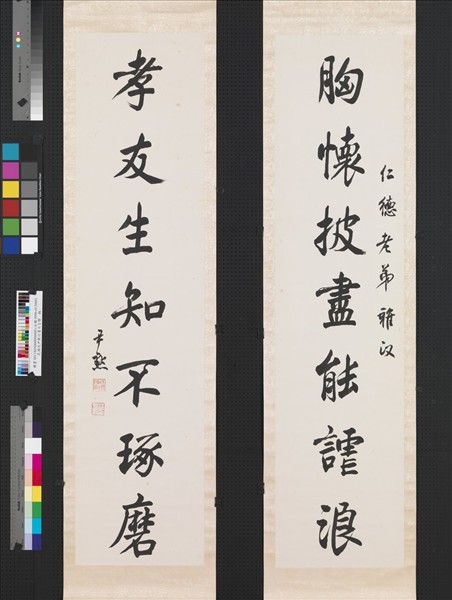 胸懷披盡能謔浪
仁德老弟雅
孝友生知不琢磨
尹默